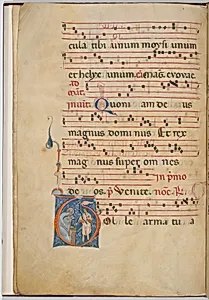 cula tibi unum moysi unum
et helye unum. evovae
invit. Quoni am de us
magnus dominus Et rex
magnus super om nes
in primo
de os. ps. Venite.
Tolle arma tu a